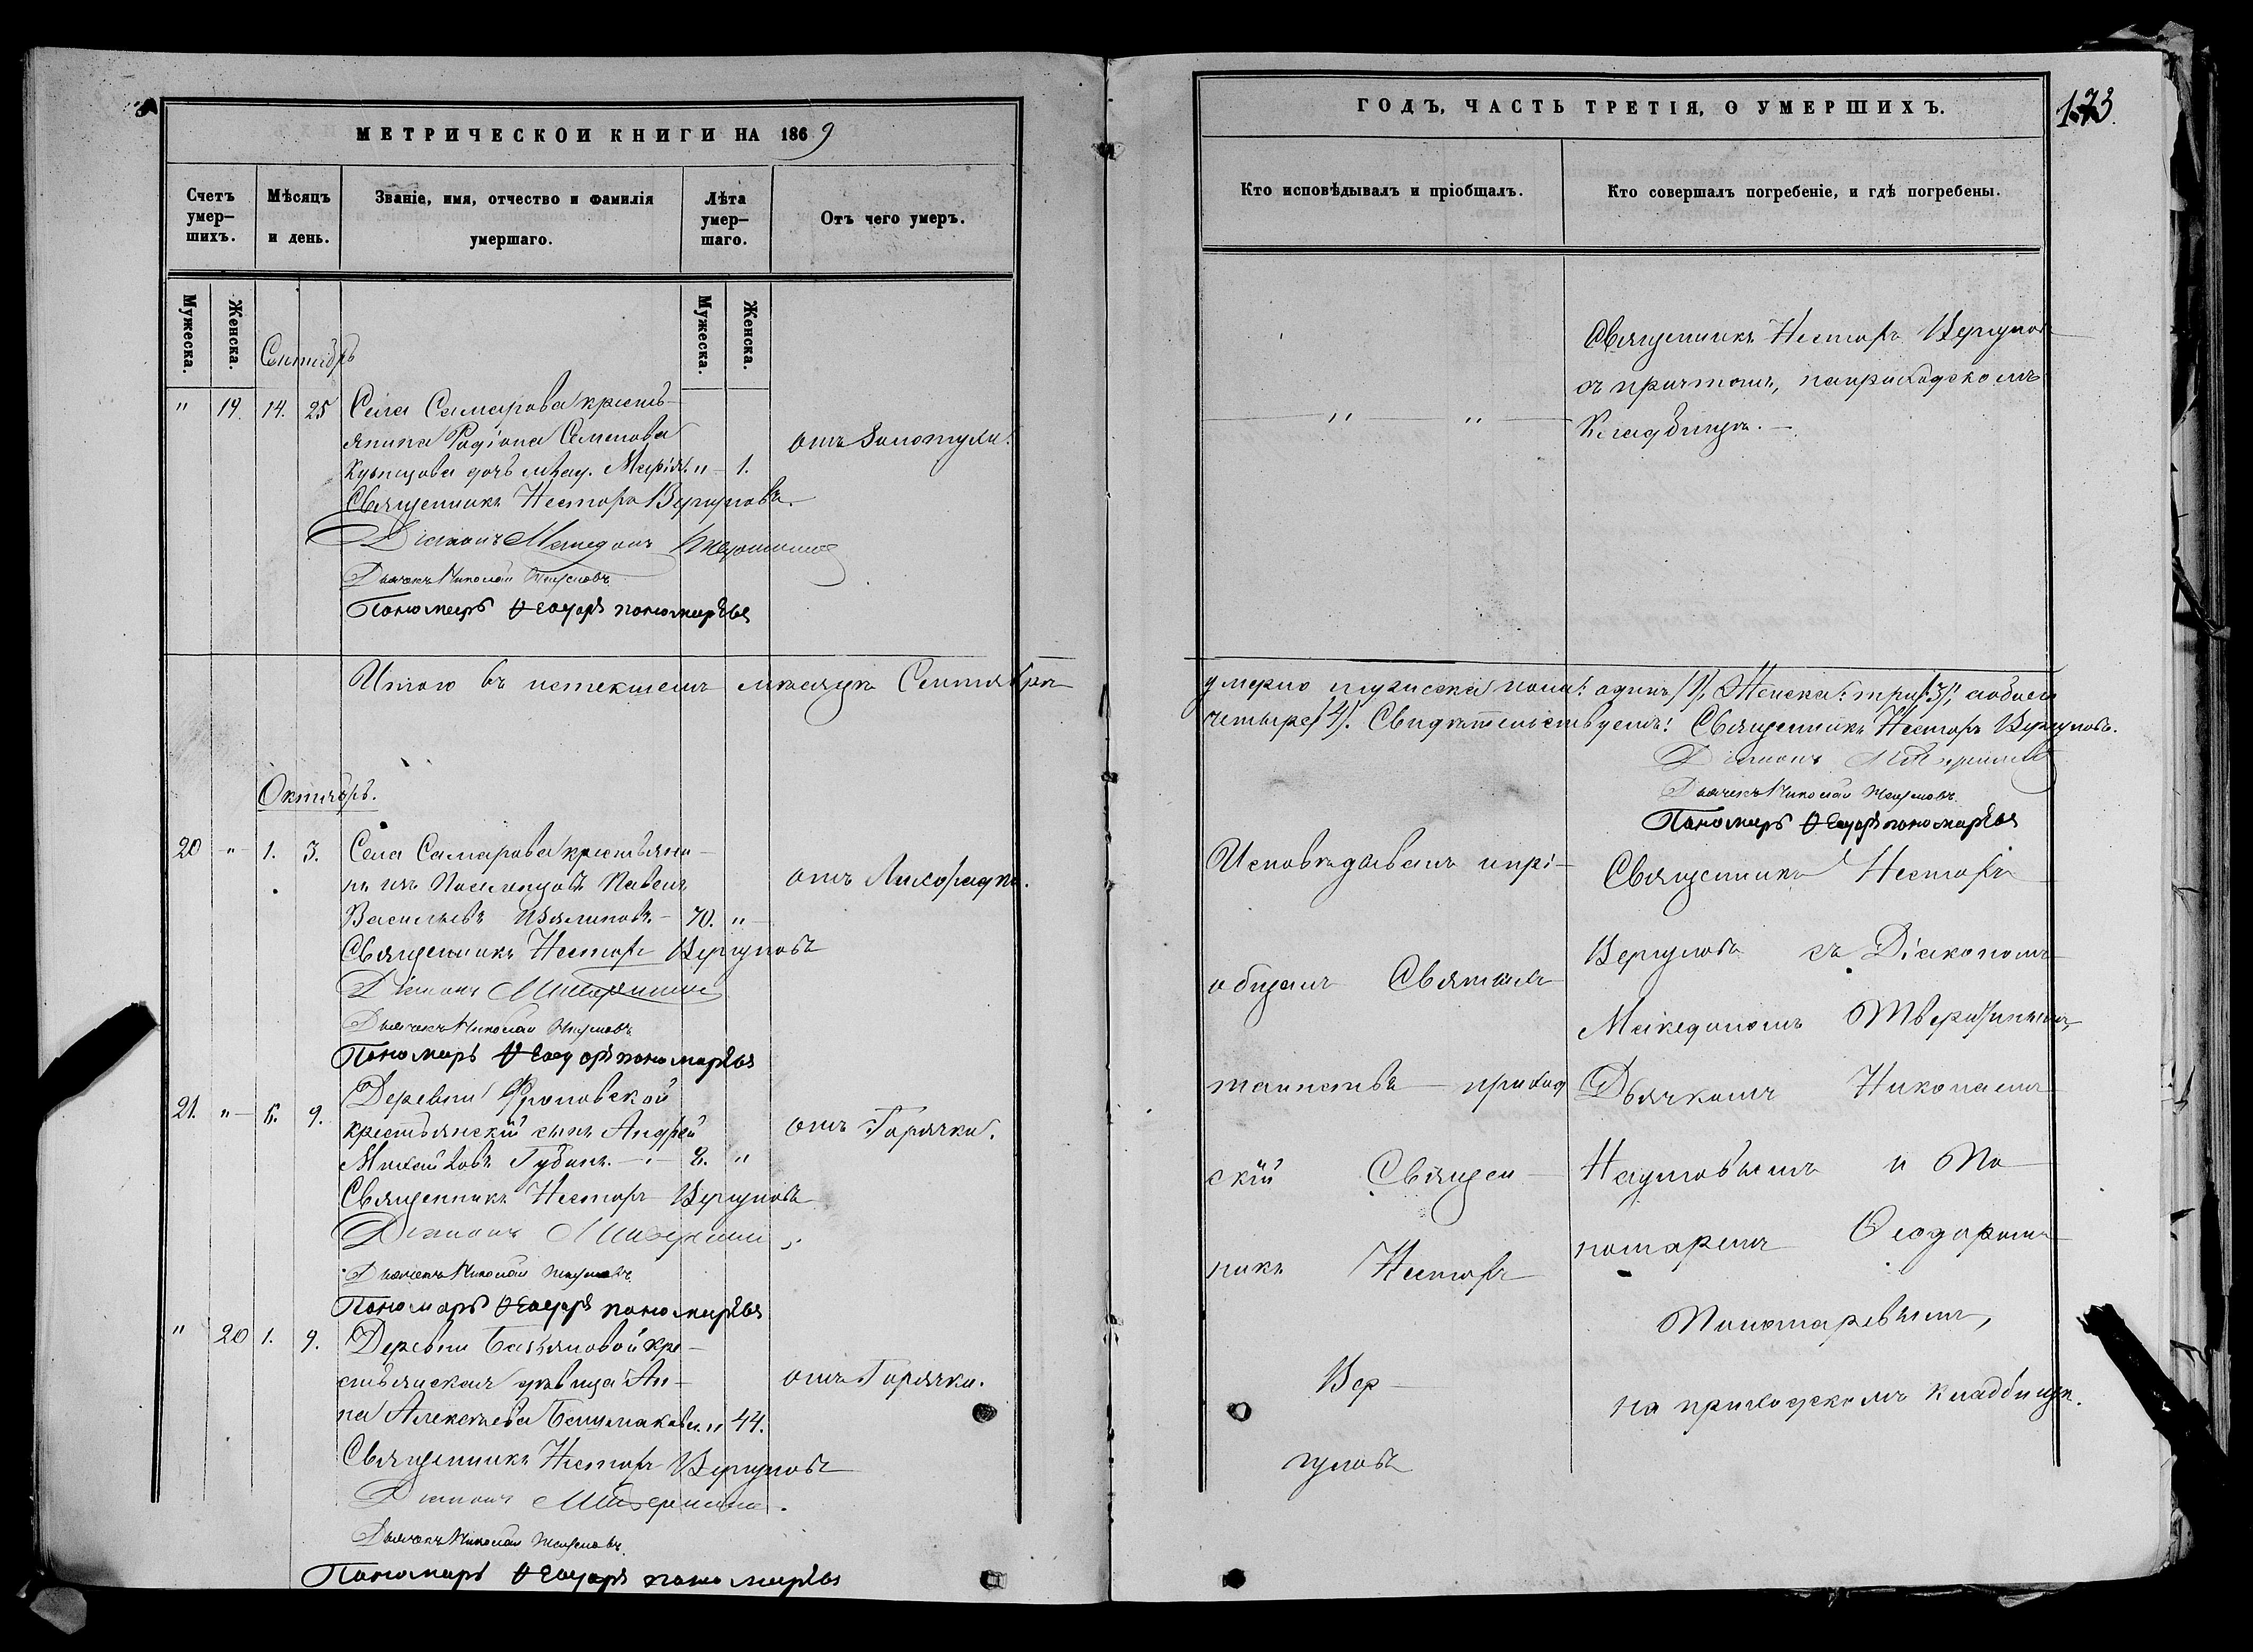 МЕТРИЧЕСКОЙ КНИГИ НА 1869
Счетъ умер-шихъ.
Мѣсяцъ и день.
Званіе, имя, отчество и фамилія умершаго.
Лѣта умер-шаго.
Отъ чего умеръ.
Мужеска.
Женска.
Мужеска.
Женска.
Сентябрь
" 19. 14. 25 Села Самарова кресть-
янина Родіона Семенова
Кузнецова дочь млад. Марія. " 1.
отъ Золотухи.
Священникъ Несторъ Вергуновъ.
Діаконъ Македонъ
Дьячекъ Николай Наумовъ
Пономарь Ѳеодоръ Пономаревъ
Итого въ истекшемъ мѣсяцѣ Сентябрѣ
Октябрь.
20 " 1. 3. Села Самарова крестьяни-
нъ изъ Поселенцовъ Павелъ
Васильевъ 70. "
отъ Лихорадки.
Священникъ Несторъ Вергуновъ
Діаконъ
Дьячекъ Николай Наумовъ
Пономарь Ѳеодоръ Пономаревъ
21. " 6. 9. Деревни Фроловской
крестьянскій сынъ Андрей
Михайловъ Губинъ. 2. "
отъ Горячки.
Священникъ Несторъ Вергуновъ
Діаконъ
Дьячекъ Николай Наумовъ
Пономарь Ѳеодоръ Пономаревъ
" 20 1. 9. Деревни Базьяновой кре-
стьянская дѣвица Ан-
на Алексѣева Башмакова. " 44.
отъ Горячки.
Священникъ Несторъ Вергуновъ
Діаконъ
Дьячекъ Николай Наумовъ
Пономарь Ѳеодоръ Пономаревъ
ГОДЪ, ЧАСТЬ ТРЕТІЯ, О УМЕРШИХЪ.
173
Кто исповѣдывалъ и пріобщалъ.
Кто совершалъ погребеніе, и гдѣ погребены.
" "
Священникъ Несторъ Вергуновъ
съ причтомъ, на приходскомъ
Кладбищѣ.
умерло мужеска пола: одинъ /1/, Женска: три /3/, а обоего
четыре /4/. Свидѣтельствуемъ: Священникъ Несторъ Вергуновъ.
Діаконъ
Дьячекъ Николай Наумовъ
Пономарь Ѳеодоръ Пономаревъ
Исповѣдывалъ и прі-
общалъ Святыхъ
таинствъ приход
скій Священ-
никъ Несторъ
Вер-
гуновъ
Священникъ Несторъ
Вергуновъ съ Діакономъ
Македономъ Тверитинымъ,
Дьячкомъ Николаемъ
Наумовымъ и По-
номаремъ Ѳеодоромъ
Пономаревымъ,
на приходскомъ кладбищѣ.